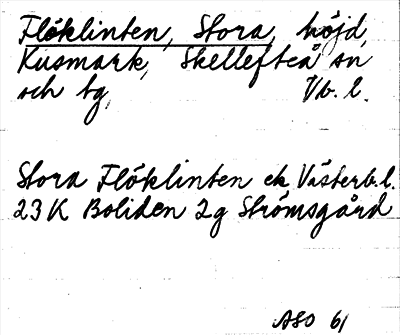 Flöklinten, Stora, höjd,
Kusmark, Skellefteå sn
och tg, Vb. l.
Stora Flöklinten ek, Västerb.l.
23K Boliden 2g Strömsgård
ASO 61